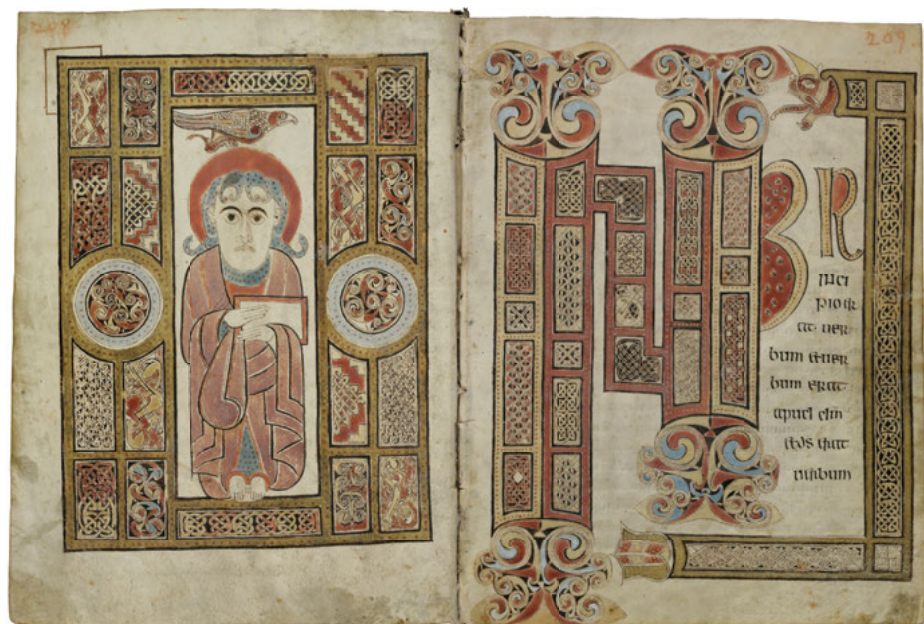 208
209
INPR
inci
pio er
at uer
bum et uer
bum erat
apud dm
et ds erat
uerbum